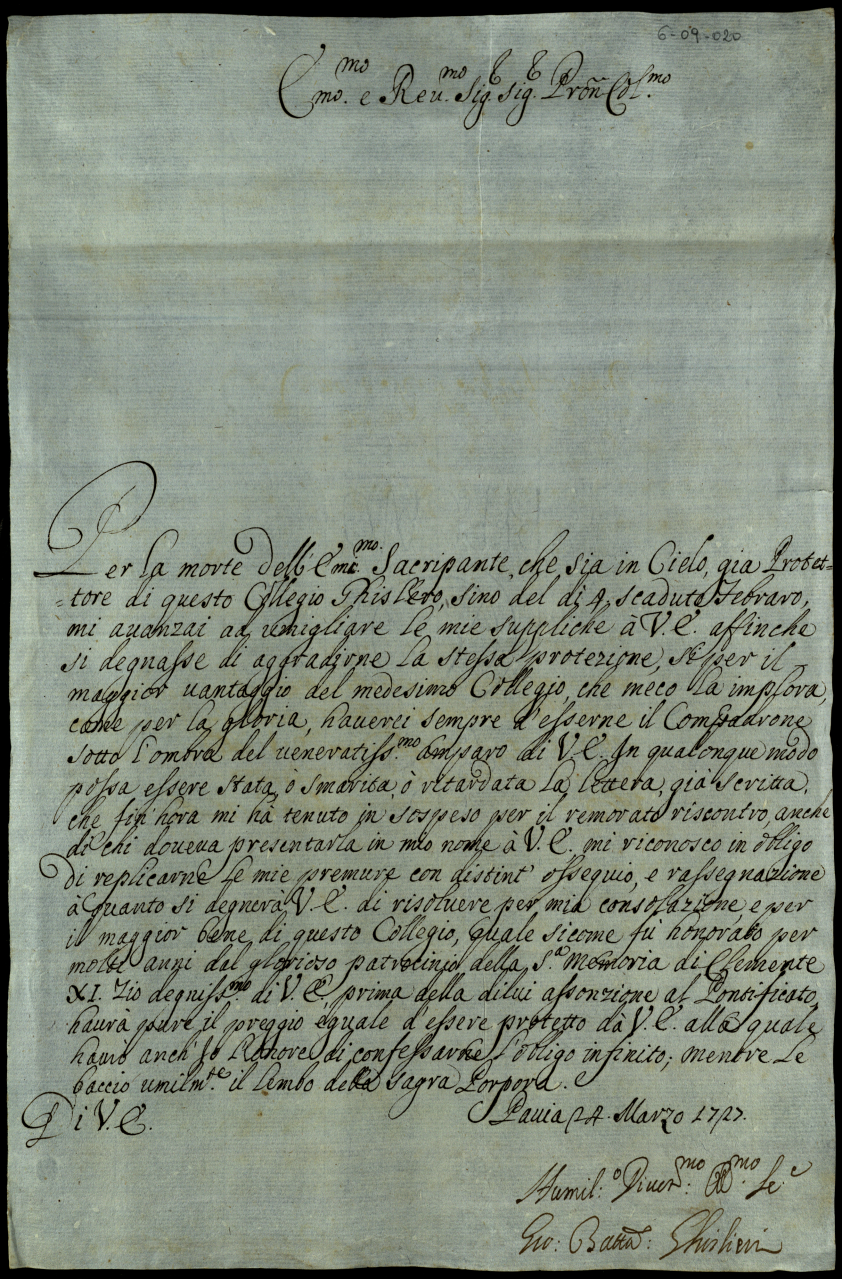 6-09-020
Emo. mo e Reu.mo Sig.r Sig.r Pron Col.mo
Per la morte dell' Emo. mo. Sacripante, che sia in Cielo, gia Protet=
=tore di questo Collegio Ghislero, sino del di 4. scaduto Febraro,
mi auanzai ad umigliare le mie suppliche à V.E. affinche
si degnasse di aggradirne la stessa protezione, sì per il
maggior uantaggio del medesimo Collegio, che meco la implora,
come per la gloria, hauerei sempre d'esserne il Compadrone
sotto l'ombra del ueneratiss.mo amparo di V.E. In qualonque modo
possa essere stata, ò smarita, ò ritardata la lettera, già scritta,
che fin' hora mi hà tenuto in sospeso per il remorato riscontro, anche
di chi doueua presentarla in mio nome à V.E. mi riconosco in obligo
di replicarne le mie premure con distint' ossequio, e rassegnazione
à quanto si degnerà V.E. di risoluere per mia consolazione, e per
il maggior bene di questo Collegio, quale sicome fù honorato per
molti anni dal glorioso patrocinio della S.a Memoria di Clemente
XI. Zio degniss.mo di V.E., prima della dilui assonzione al Pontificato,
haurà pure il preggio eguale d'essere protetto dà V.E. alla quale
hauro anch' Io l'honore di confessarne l'obligo infinito; mentre le
baccio umilm.te il lembo della sagra Porpora.
Di V.E. Pauia 24. Marzo 1727.
Humil:o Diuot:mo mo Se.e
Gio: Batta: Ghislieri